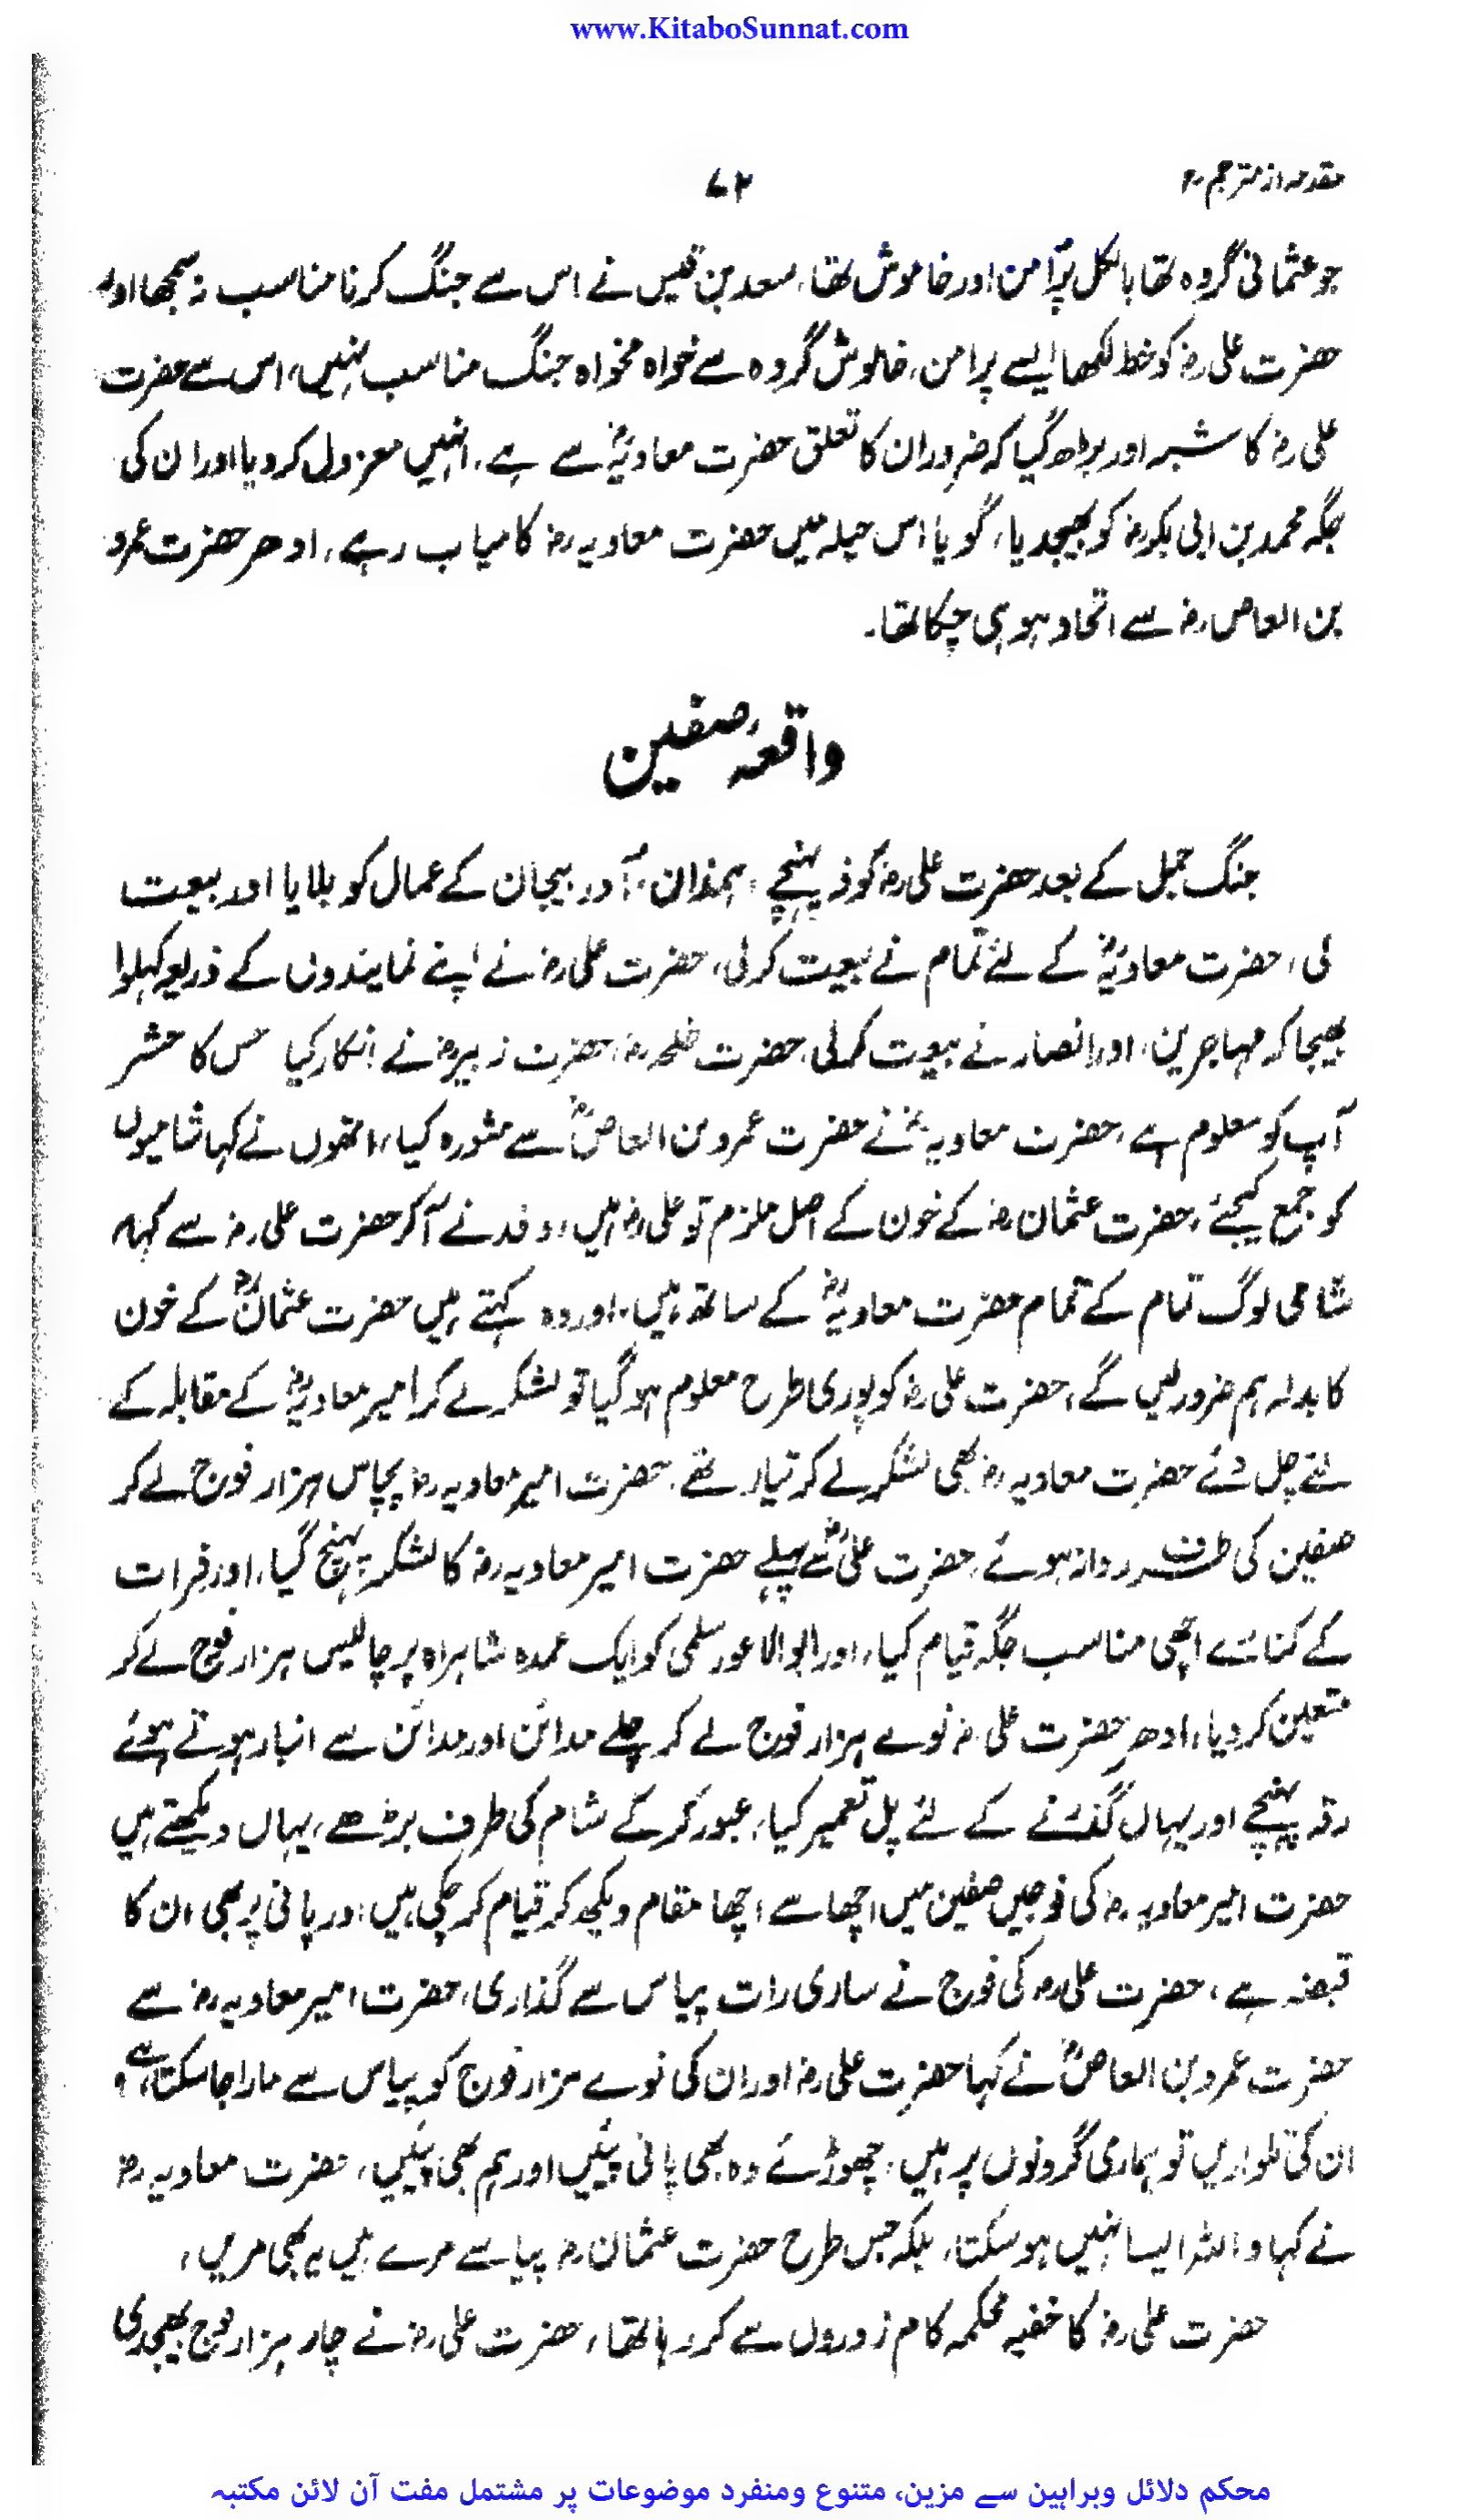 www.KitaboSunnat.com
مقدمہ از مترجم ۲۰
۷۲
جو عثمانی گروہ تھا بالکل پُرامن اور خاموش تھا، سعد بن قیس نے اس سے جنگ کرنا مناسب نہ سمجھا اور
حضرت علی رضہ کو خط لکھا ایسے پرامن، خاموش گروہ سے خواہ مخواہ جنگ مناسب نہیں، اس سے حضرت
علی رضہ کا شبہ اور بڑھ گیا کہ ضرور ان کا تعلق حضرت معاویہؓ سے ہے، انہیں معزول کر دیا اور ان کی
جگہ محمد بن ابی بکر رضہ کو بھیجدیا، گویا اس حیلہ میں حضرت معاویہ رضہ کامیاب رہے، ادھر حضرت عمرو
بن العاص رضہ سے اتحاد ہو ہی چکا تھا۔
واقعۂ صفین
جنگ جمل کے بعد حضرت علی رضہ کوفہ پہنچے، ہمذان، آذر بیجان کے عمال کو بلایا اور بیعت
لی، حضرت معاویہؓ کے لئے تمام نے بیعت کرلی، حضرت علی رضہ نے اپنے نمایندوں کے ذریعہ کہلوا
بھیجا کہ مہاجرین، اور انصار نے بیعت کرلی، حضرت طلحہ رضہ، حضرت زبیر رضہ نے انکار کیا جس کا حشر
آپ کو معلوم ہے، حضرت معاویہؓ نے حضرت عمرو بن العاصؓ سے مشورہ کیا، انھوں نے کہا شامیوں
کو جمع کیجئے، حضرت عثمان رضہ کے خون کے اصل ملزم تو علی رضہ ہیں، وفد نے آکر حضرت علی رضہ سے کہہ
شامی لوگ تمام کے تمام حضرت معاویہؓ کے ساتھ ہیں، اور وہ کہتے ہیں حضرت عثمانؓ کے خون
کا بدلہ ہم ضرور لیں گے، حضرت علی رضہ کو پوری طرح معلوم ہو گیا تو لشکر لے کر امیر معاویہؓ کے مقابلہ کے
لئے چل دئے حضرت معاویہ رضہ بھی لشکر لے کر تیار تھے، حضرت امیر معاویہ رضہ پچاس ہزار فوج لے کر
صفین کی طرف روانہ ہوئے، حضرت علیؓ سے پہلے حضرت امیر معاویہ رضہ کا لشکر پہنچ گیا، اور فرات
کے کنارے اچھی مناسب جگہ قیام کیا، اور ابو الاعور سلمی کو ایک عمدہ شاہراہ پر چالیس ہزار فوج لے کر
متعین کر دیا، ادھر حضرت علی رضہ نوے ہزار فوج لے کر چلے مدائن اور مدائن سے انبار ہوتے ہوئے
رقہ پہنچے اور یہاں گذرنے کے لئے پل تعمیر کیا، عبور کر کے شام کی طرف بڑھے، یہاں دیکھتے ہیں
حضرت امیر معاویہ رضہ کی فوجیں صفین میں اچھا سے اچھا مقام دیکھ کر قیام کر چکی ہیں اور پانی پر بھی ان کا
قبضہ ہے، حضرت علی رضہ کی فوج نے ساری رات پیاس سے گذاری، حضرت امیر معاویہ رضہ سے
حضرت عمرو بن العاصؓ نے کہا حضرت علی رضہ اور ان کی نوے ہزار فوج کو پیاس سے مارا جا سکتا ہے؟
ان کی تلواریں تو ہماری گردنوں پر ہیں، چھوڑئے وہ بھی پانی پئیں اور ہم بھی پئیں، حضرت معاویہ رضہ
نے کہا واللہ ایسا نہیں ہو سکتا، بلکہ جس طرح حضرت عثمان رضہ پیاسے مرے ہیں یہ بھی مریں،
حضرت علی رضہ کا خفیہ محکمہ کام زوروں سے کر رہا تھا، حضرت علی رضہ نے چار ہزار فوج بھیجدی
محکم دلائل وبراہین سے مزین، متنوع ومنفرد موضوعات پر مشتمل مفت آن لائن مکتبہ